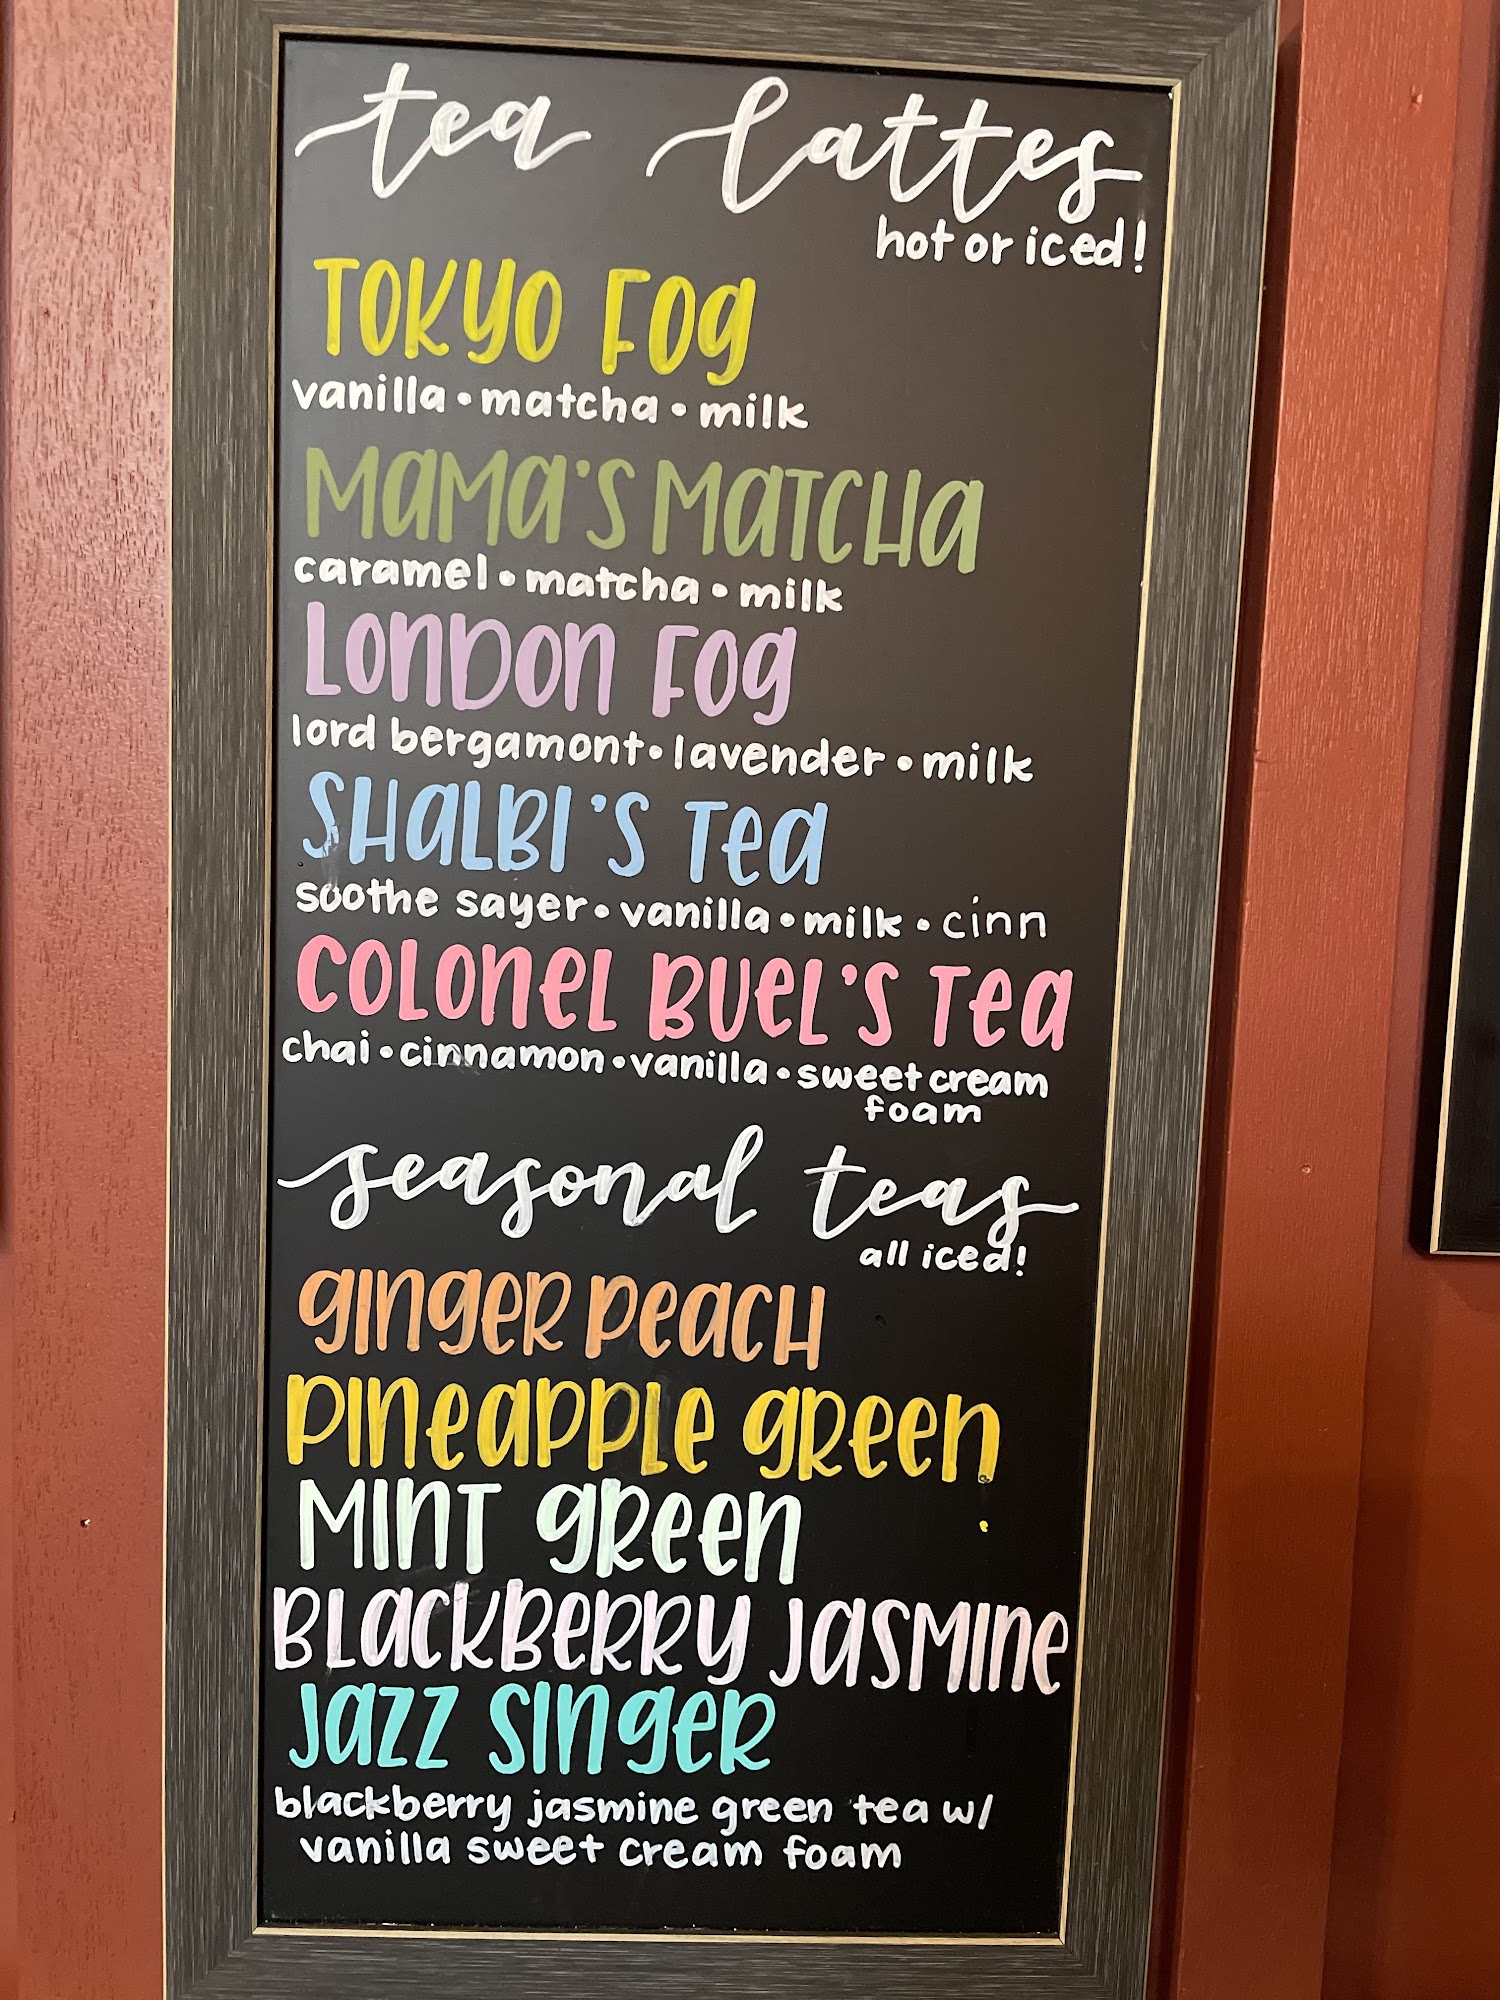 tea lattes
hot or iced!
TOKYO FOg
vanilla • matcha • milk
MaMa'S MaTCHa
caramel • matcha • milk
LOnDOn FOg
lord bergamont • lavender • milk
SHaLBI'S Tea
soothe sayer • vanilla • milk • cinn
COLOneL BUeL'S Tea
chai • cinnamon • vanilla • sweet cream
foam
seasonal teas
all iced!
gIngeR PeacH
PIneaPPLe gReen
MInT gReen
BLackBeRRY JaSMIne
Jazz SIngeR
blackberry jasmine green tea w/
vanilla sweet cream foam